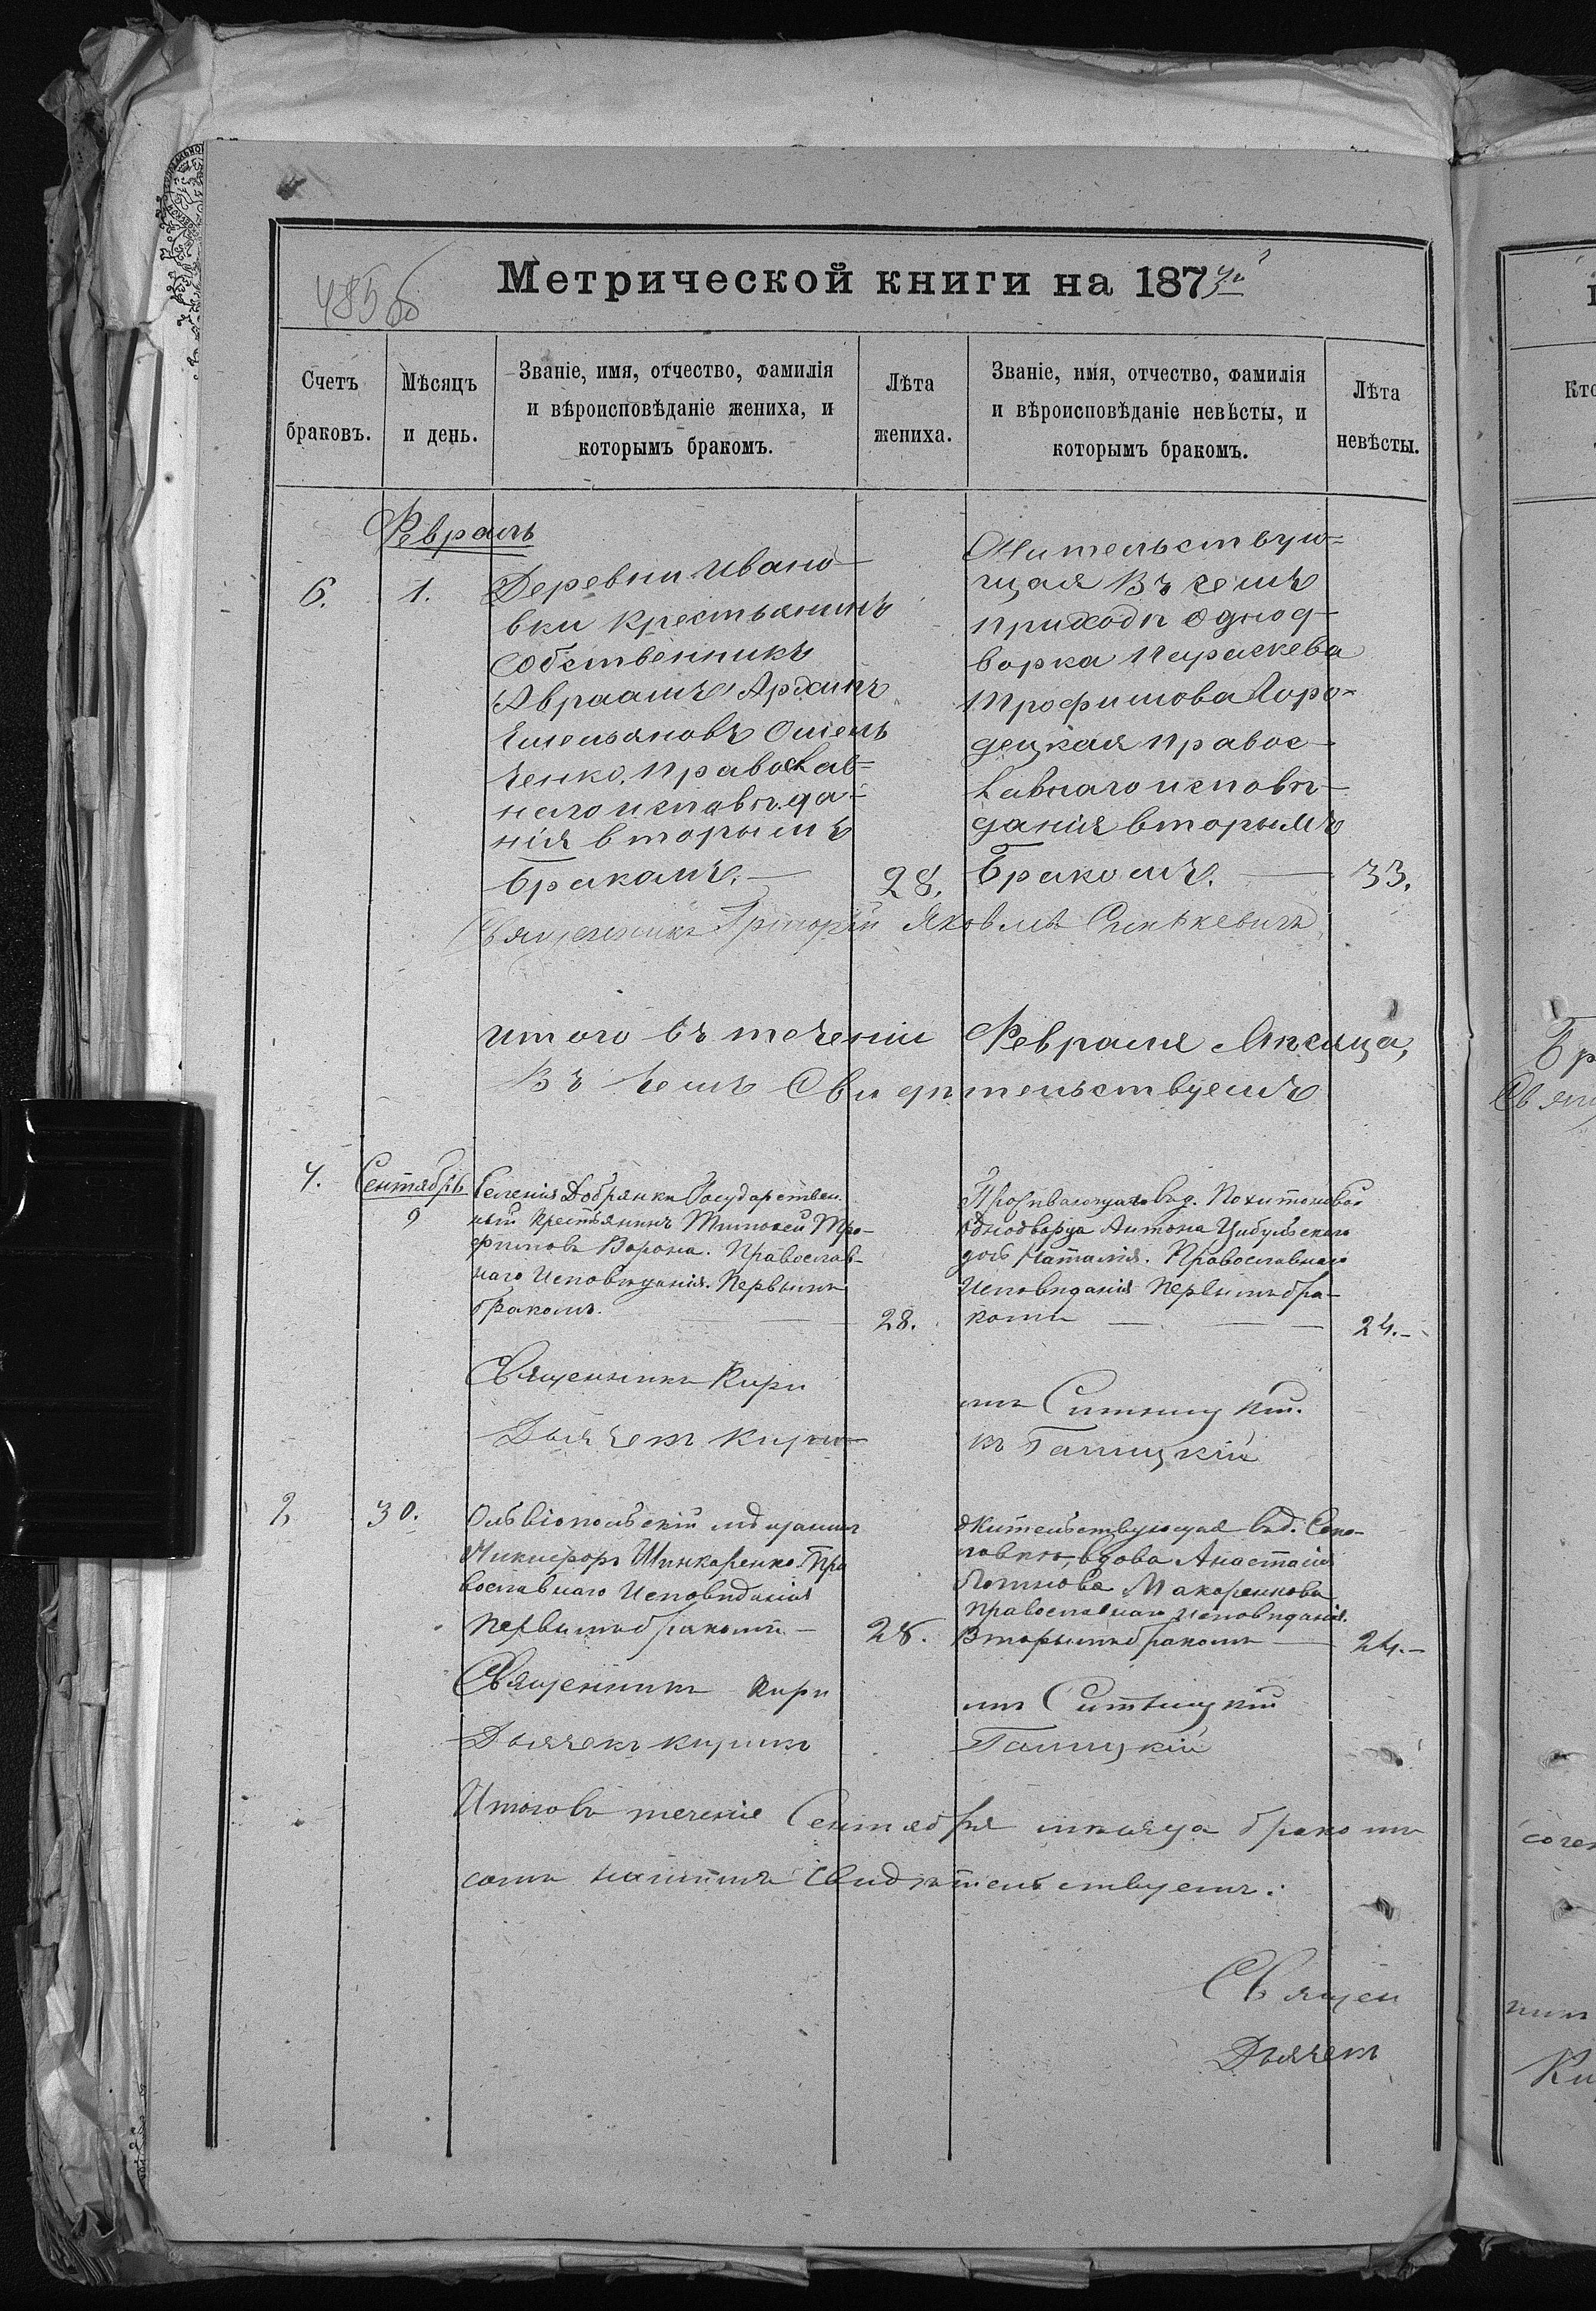 485 об
Метрической книги на 1873й
Счетъ браковъ.
Мѣсяцъ и день.
Званіе, имя, отчество, фамилія
и вѣроисповѣданіе жениха, и
которымъ бракомъ.
Лѣта жениха.
Званіе, имя, отчество, фамилія
и вѣроисповѣданіе невѣсты, и
которымъ бракомъ.
Лѣта невѣсты.
Февраль
6.
1.
Деревни Ивано-
вки крестьянинъ
Собственникъ
Авраамъ Архипъ
Емельяновъ Омель
ченко, православ=
наго исповѣда-
нія вторымъ
бракомъ.
28.
Жительствую=
щая въ семъ
приходѣ однод-
ворка Параскева
Трофимова Горо-
децкая правос-
лавнаго исповѣ-
данія вторымъ
бракомъ.
33.
Священникъ Яковлевъ
итого въ теченіи Февраля Мѣсяца,
Въ чемъ Свидѣтельствуемъ
Сентябрь
9
Селенія Добрянки Государствен.
ный крестьянинъ Тимофей Тро-
фимовъ Ворона. Православ-
наго Исповѣданія. Первымъ
бракомъ.
28.
Проживающаго въ д.
Однодворца Антона Цибульскаго
дочь Наталія. Православнаго
Исповѣданія первымъ бра-
комъ
24.
Священникъ Кири
лъ Ситницкій.
Дьячекъ Кири
лъ Галицкій
2
30.
Ольвіопольскій мѣщанинъ
Никифоръ Шинкаренко. Пра
вославнаго Исповѣданія
первымъ бракомъ
28.
Жительствующая въ д. Соко-
ловкѣ, вдова Анастасія
Макаренкова
Православнаго исповѣданія.
Вторымъ бракомъ
24.
Священникъ Кири
лъ Ситницкій
Дьячекъ Кирилъ
Галицкій
Итого въ теченіе Сентября мѣсяца
свидѣтельствуемъ:
Священ
Дьячекъ